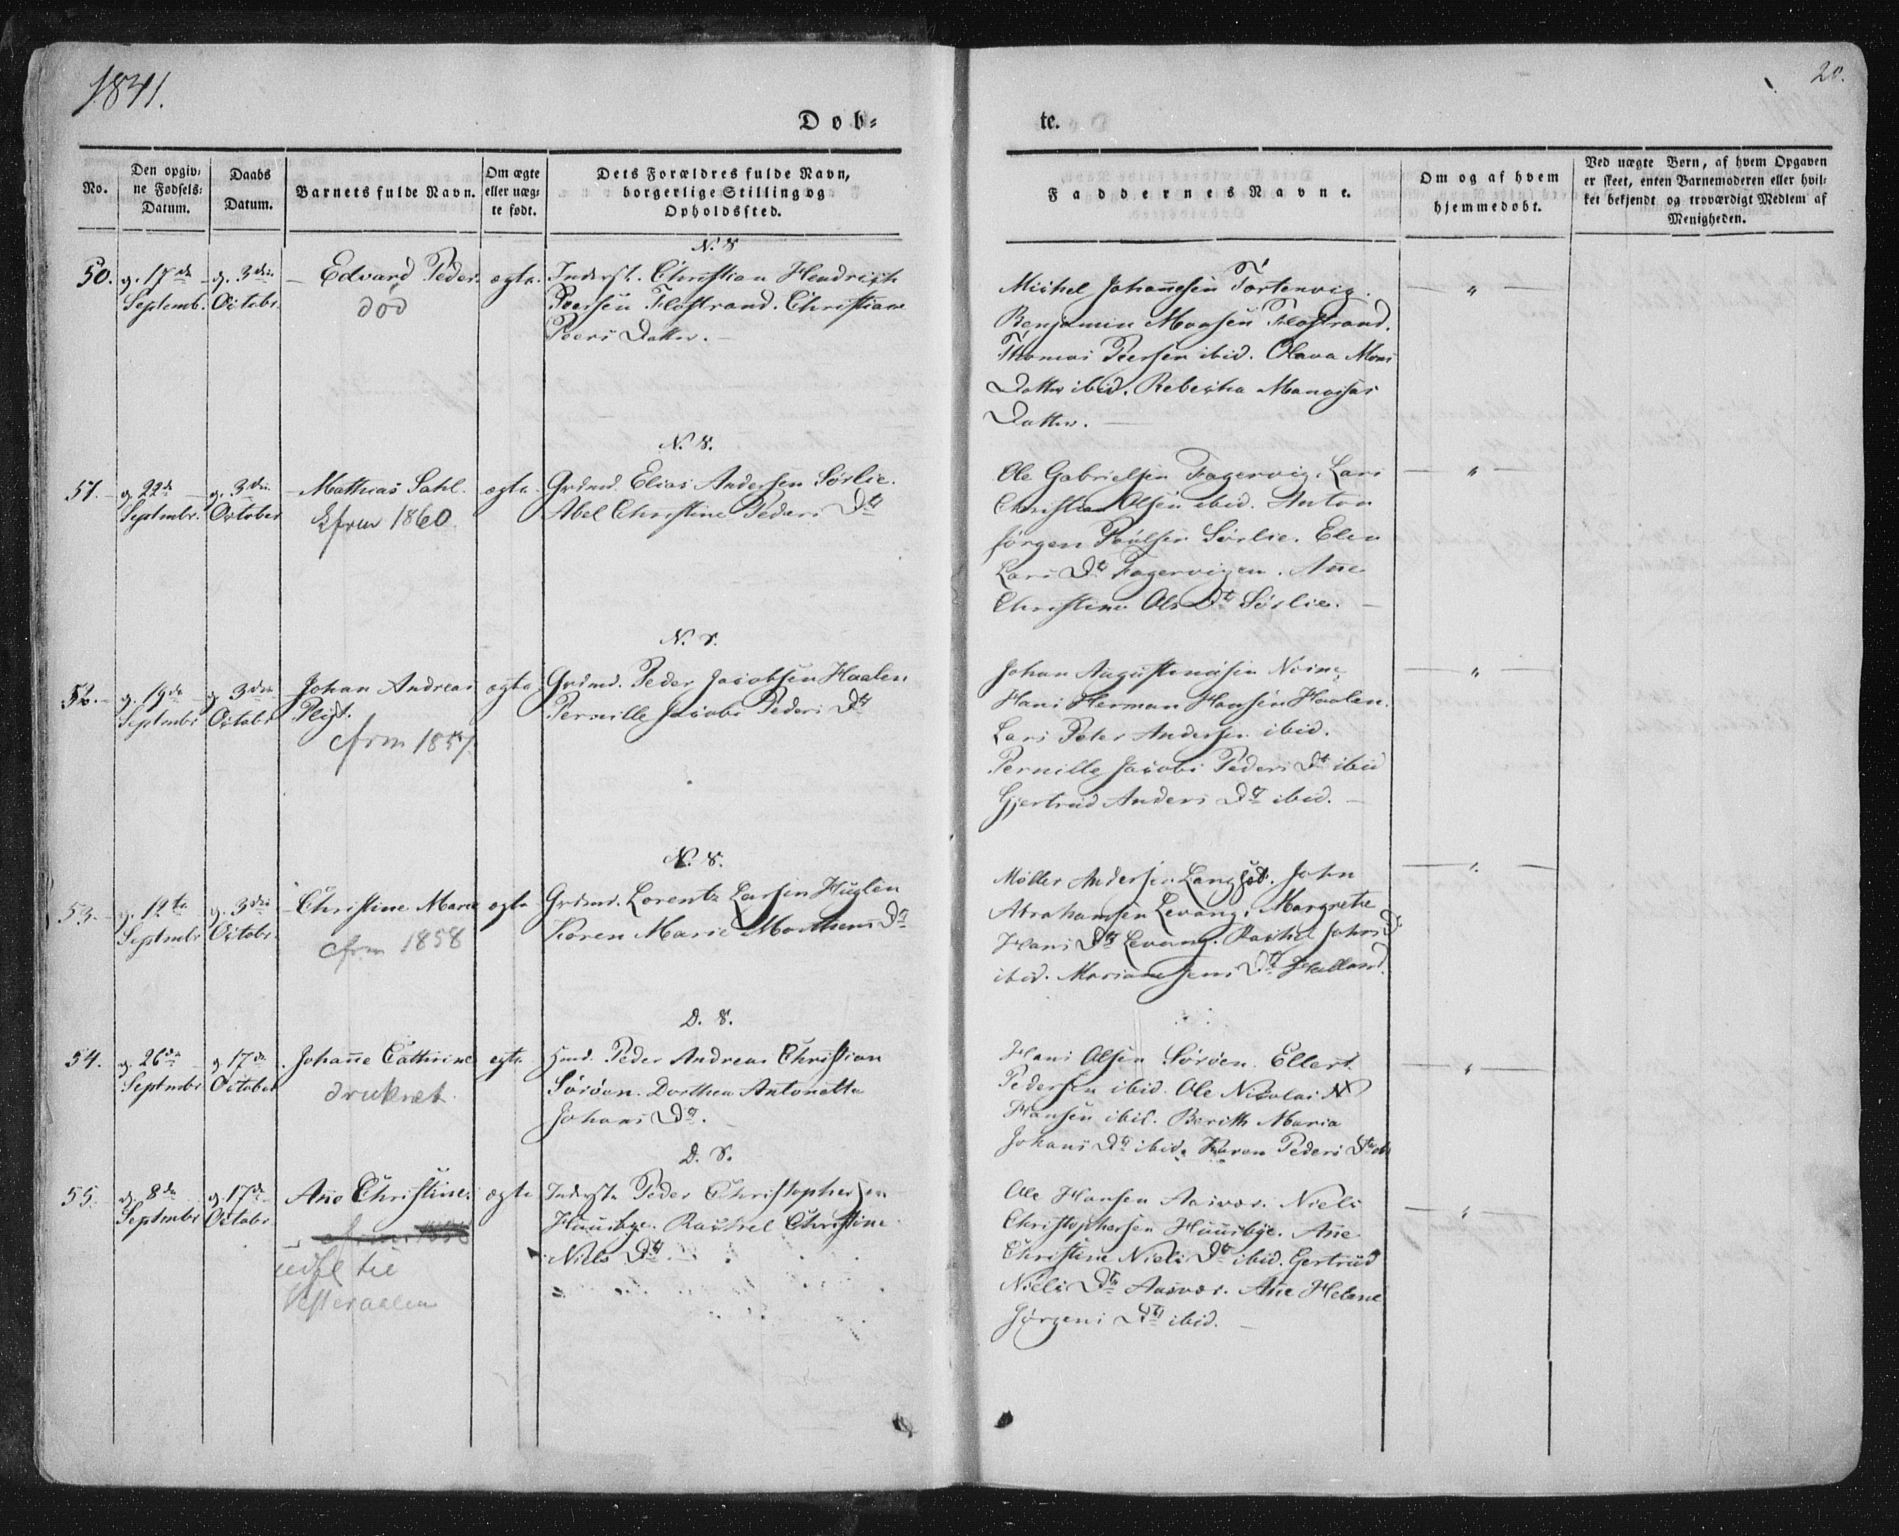 1841.
20.
Dob=
te.
No.
Den opgiv=
ne Fødsels=
Datum.
Daabs
Datum.
Barnets fulde Navn.
Om ægte
eller uæg=
te født.
Dets Forældres fulde Navn,
borgerlige Stilling og
Opholdssted.
Faddernes Navne.
Om og af hvem
hjemmedøbt.
Ved uægte Børn, af hvem Opgaven
er skeet, enten Barnemoderen eller hvil=
ket bekjendt og troværdigt Medlem af
Menigheden.
N. S
50.
g. 17de
Septemb.
g. 3die
Octobr.
Edvard Peder.
død
ægte.
Inderst. Christian Hendrich
Peersen Flostrand. Christiane
Peers Datter.
Michel Johañesen Tortenvig.
Benjamin Monsen Flostrand.
Thomas Peersen ibid. Olava Mons
Datter ibid. Rebecka Manasses
Datter.
N. S.
51.
g. 22de
Septembr.
g. 3die
October
Mathias Sahl.
Cfrm 1860.
ægte.
Grdmd. Elias Andersen Sørlie.
Abel Christine Peders Dtr
Ole Gabrielsen Fagervig. Lars
Christian Olsen ibid. Anton
Jørgen Paulsen Sørlie. Elen
Lars Dtr Fagervigen. Añe
Christine Ols Dtr Sørlie.
N. S.
52.
g. 19de
Septembr
g. 3die
Octobr
Johan Andreas
Pligt.
Cfrm 1857.
ægte
Grdmd. Peder Jacobsen Haalen
Pernille Jacobe Peders Dtr
Johan Augustinusen
Hans Herman Hansen Haalen.
Lars Peter Andersen ibid.
Pernille Jacobe Peders Dtr ibid
Gjertrud Anders Dtr ibid.
N. S.
53.
g. 12te
Septembr
g. 3die
Octobr.
Christine Marie
cfrm 1858
ægte
Grdmd. Lorentz Larsen Huglen
Karen Marie Morthens Dtr
Møller Andersen Langset. John
Abrahamsen Levang. Margrethe
Hans Dtr Levang. Rachel Johns D
ibid. Mariane Jens Dtr Hielland.
D. S.
54.
g. 26de
Septembr
g. 17de
October
Johañe Cathrine
druknet
ægte
Hmd. Peder Andreas Christian
Sørøen. Dorthea Antonette
Johans Dtr.
Hans Olsen Sørøen. Ellert
Pedersen ibid. Ole Nicolai
Hansen ibid. Berith Maria
Johans Dtr ibid. Karen Peders Dtr ib
D. S.
55.
g. 8de
Septembr
g. 17de
Octobr.
Añe Christine.
cfrm. 1858
udfl til
Vesteraalen
ægte
Inderst. Peder Christophersen
Huusbye. Rachel Christine
Niels Dtr
Ole Hansen Aasvær. Niels
Christophersen Huusbye. Añe
Christine Niels Dtr ibid. Gertrud
Niels Dtr Aasvær. Añe Helene
Jørgens Dtr ibid.